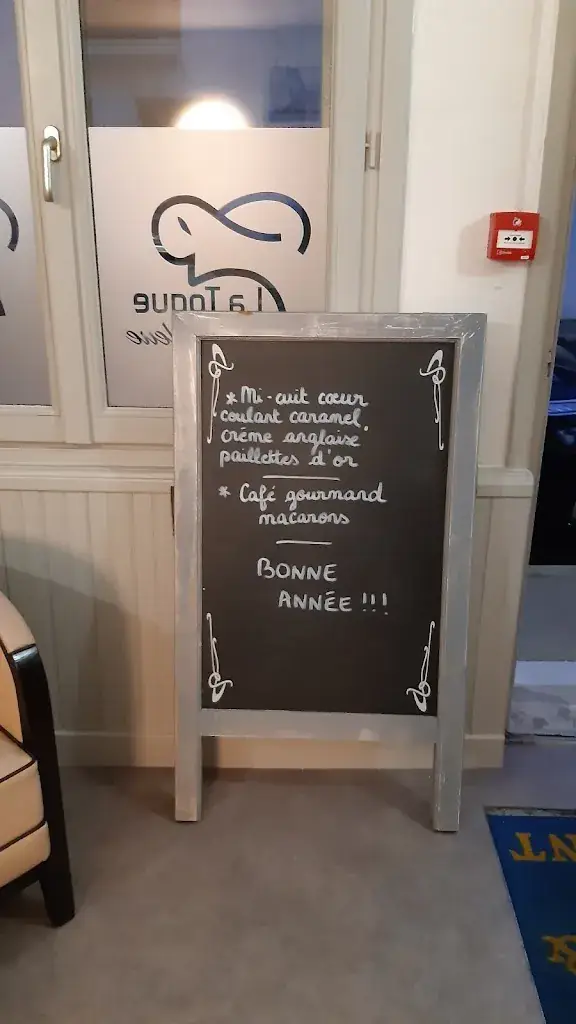 La Toque
* Mi-cuit cœur
coulant caramel,
crème anglaise
paillettes d'or
* Café gourmand
macarons
BONNE
ANNÉE !!!
NT